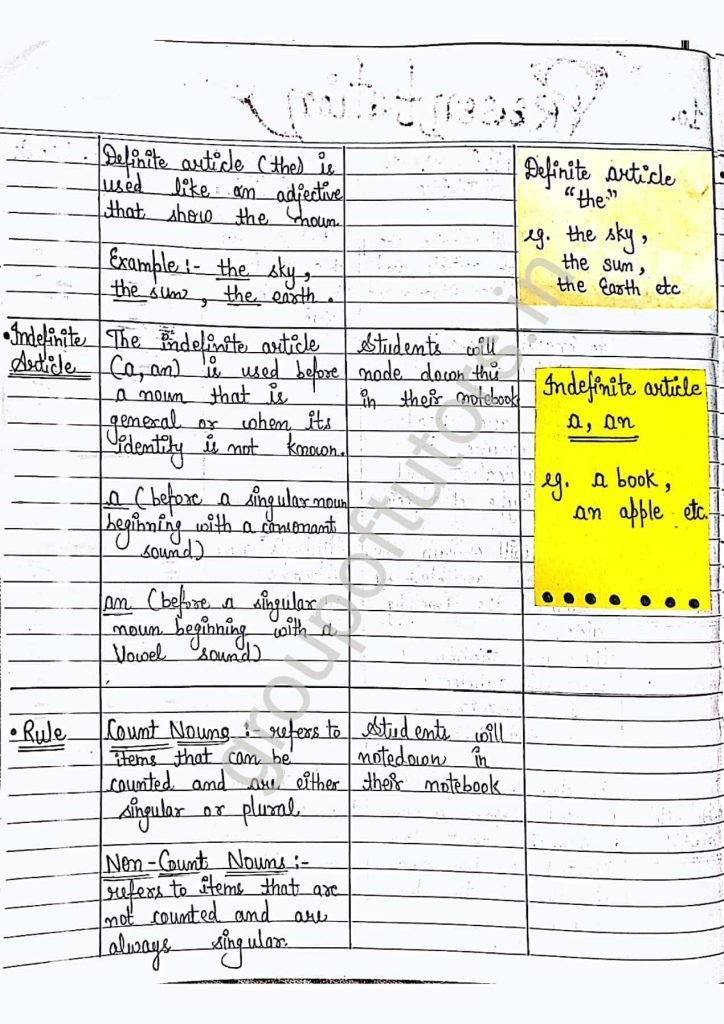 Presentation
Definite article (the) is
used like an adjective
that show the noun
Example :- the sky,
the sun, the earth.
Definite article
"the"
eg. the sky,
the sun,
the Earth etc
• Indefinite
Article
The indefinite article
(a, an) is used before
a noun that is
general or when its
identity is not known.
a (before a singular noun
beginning with a consonant
sound)
an (before a singular
noun beginning with a
Vowel sound)
Students will
node down this
in their notebook
Indefinite article
a, an
eg. a book,
an apple etc.
• Rule
Count Nouns :- refers to
items that can be
counted and are either
singular or plural
Non-Count Nouns :-
refers to items that are
not counted and are
always singular.
Students will
notedown in
their notebook
groupoftutors.in